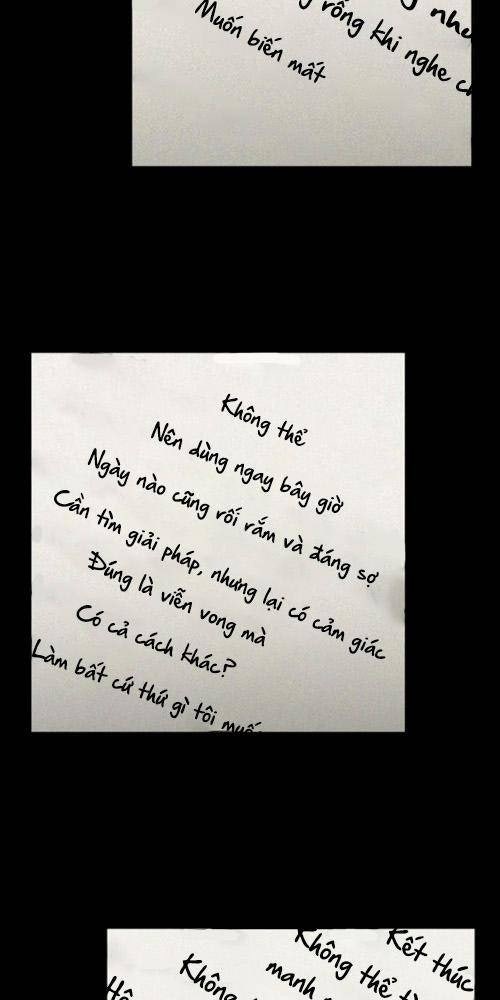 nhu
rỗng khi nghe
Muốn biến mất
Không thể
Nên dừng ngay bây giờ
Ngày nào cũng rối rắm và đáng sợ
Cần tìm giải pháp, nhưng lại có cảm giác
Đúng là viễn vong mà
Có cả cách khác?
Làm bất cứ thứ gì tôi muố
Kết thúc
Không thể
Không
manh